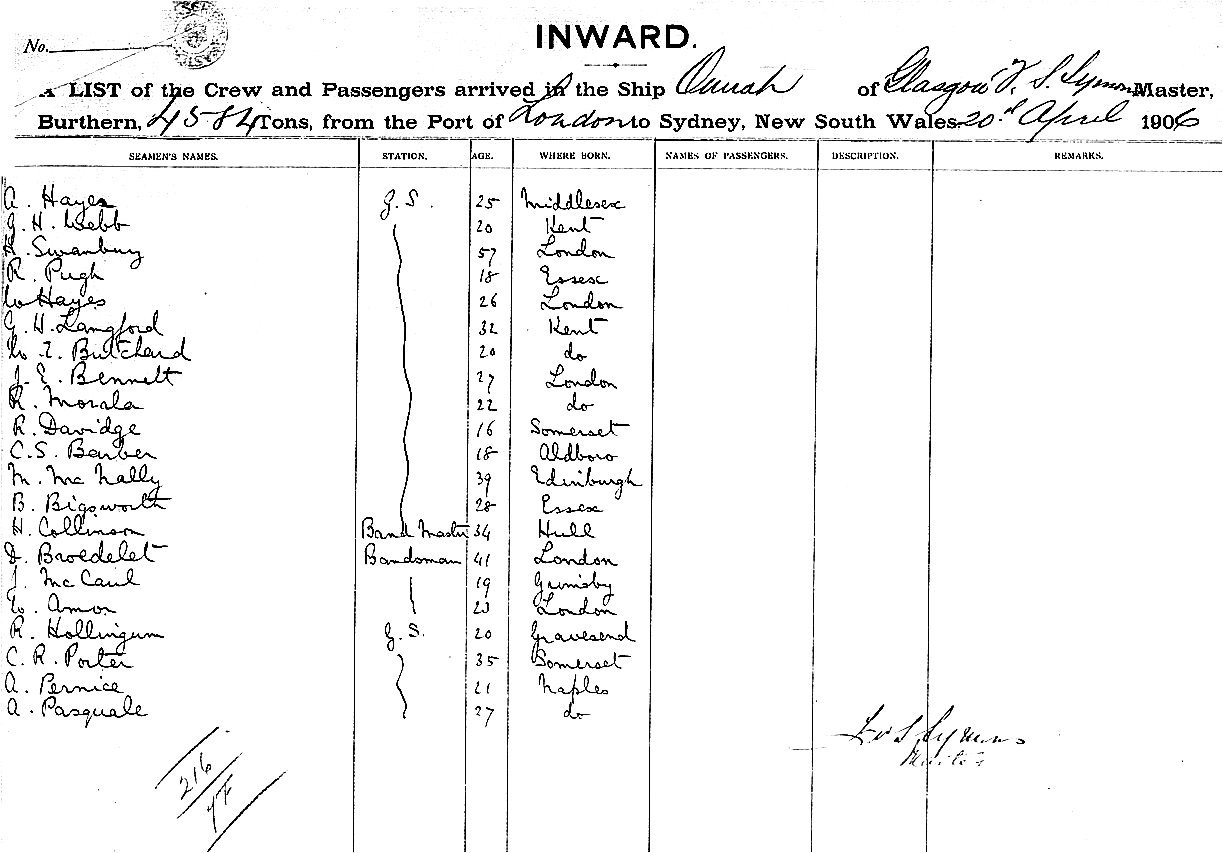 No.
INWARD.
A LIST of the Crew and Passengers arrived in the Ship Oanah of Glasgow V. S. Symons Master,
Burthern, 4584 Tons, from the Port of London to Sydney, New South Wales 20th April 1906
SEAMEN'S NAMES. STATION. AGE. WHERE BORN. NAMES OF PASSENGERS. DESCRIPTION. REMARKS.
A. Hayes G.S. 25 Middlesex
G. H. Webb 20 Kent
H. Swanbury 57 London
R. Pugh 18 Essex
W Hayes 26 London
G. H. Langford 32 Kent
W. E. Butchard 20 do
J. E. Bennett 27 London
R. Morala 22 do
R. Davidge 16 Somerset
C. S. Barber 18 Aldboro
M. Mc Nally 39 Edinburgh
B. Bigsworth 28 Essex
H. Collinson Band Master 34 Hull
D. Broedelet Bandsman 41 London
J. Mc Caul 19 Grimsby
W. Amor 23 London
R. Hollingum G.S. 20 Gravesend
C. R. Porter 35 Somerset
A. Pernice 21 Naples
A. Pasquale 27 do
Symons
216